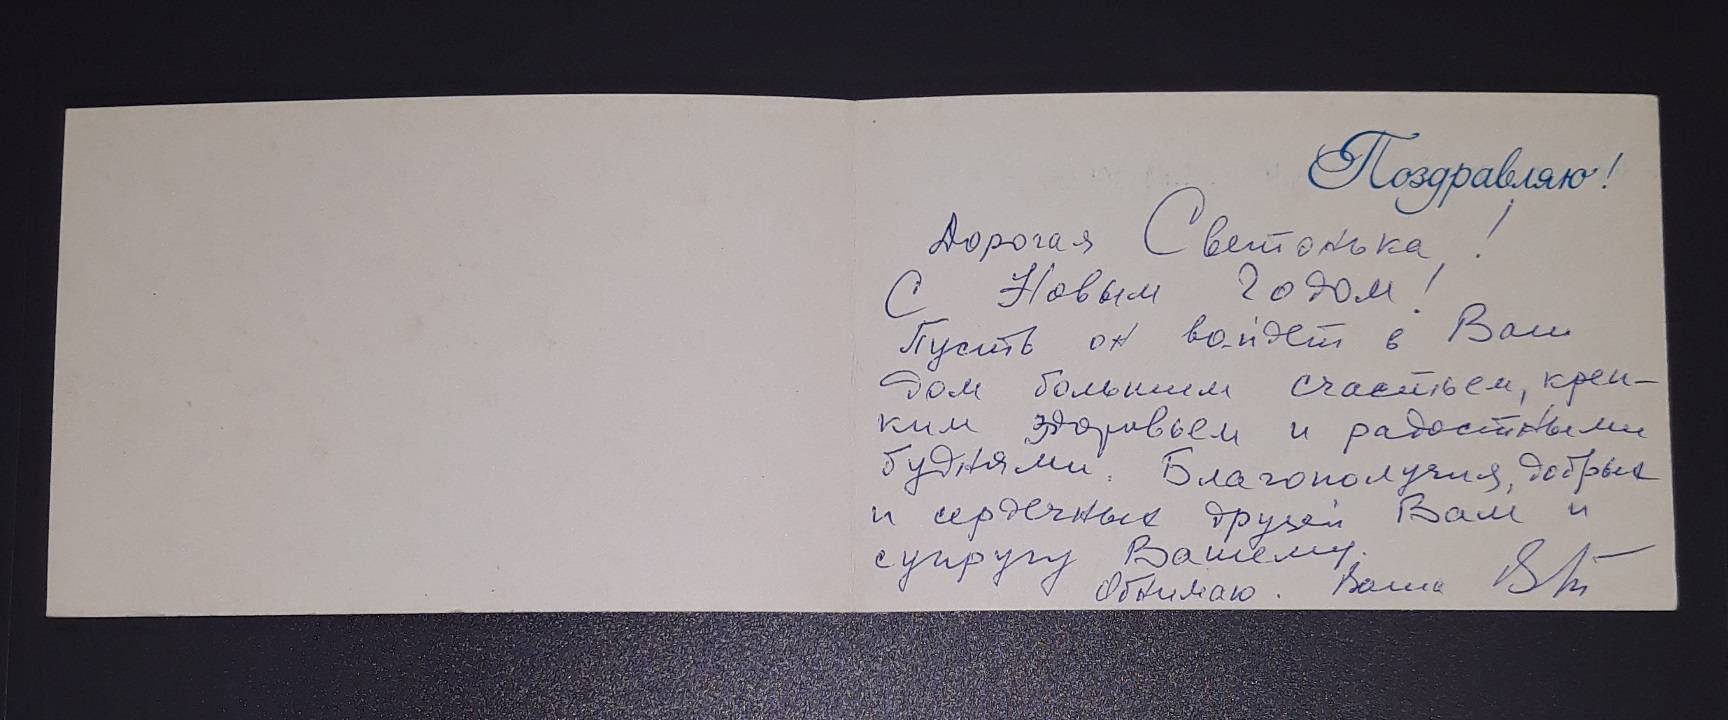 Поздравляю!
Дорогая Светонька!
С Новым годом!
Пусть он войдет в Ваш
дом большим счастьем, креп-
ким здоровьем и радостными
буднями. Благополучия, добрых
и сердечных друзей Вам и
супругу Вашему.
Обнимаю. Ваша